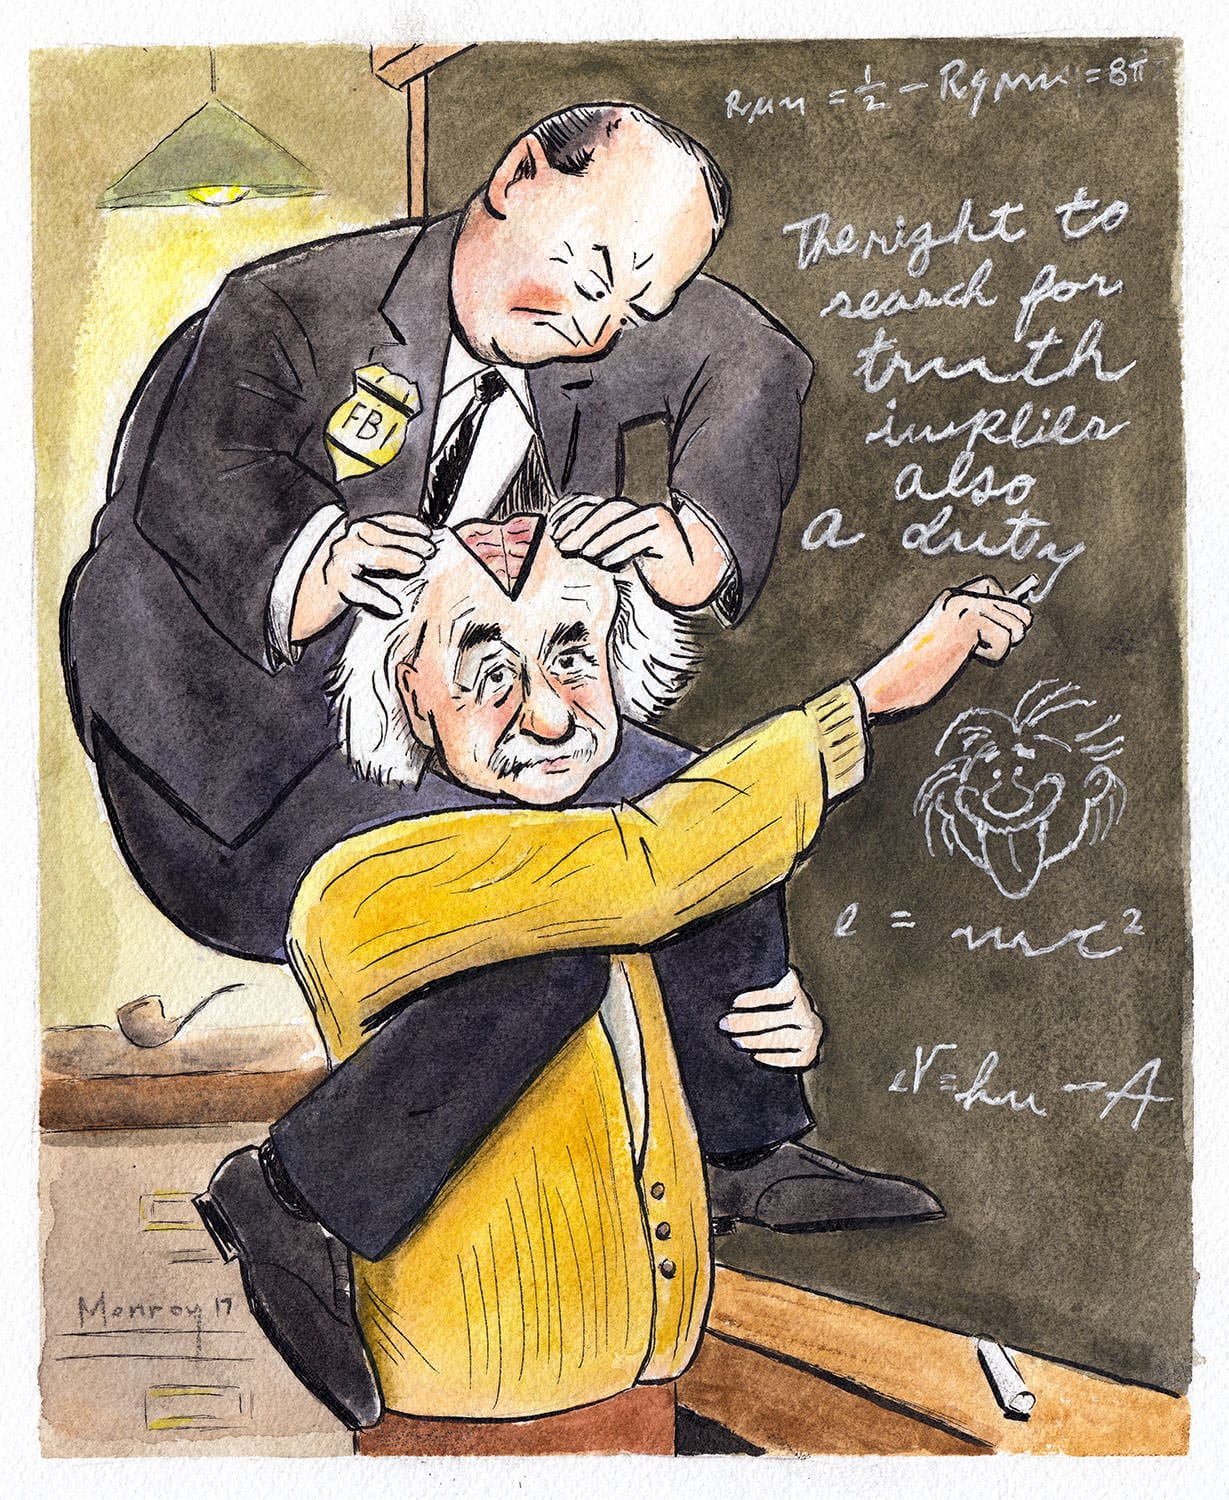 Rμν = 1/2 - Rgμν = 8π
The right to
search for
truth
implies
also
a duty
FBI
e = mc²
eV = hν - A
Monroy 17